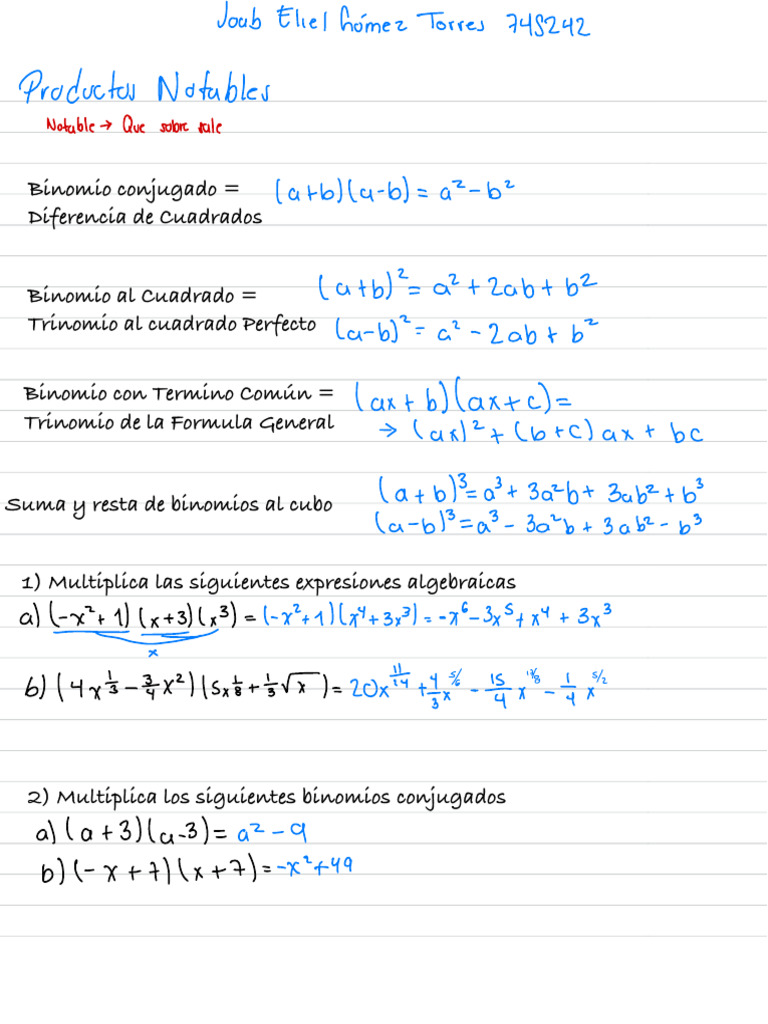 Joab Eliel Gómez Torres 745242
Productos Notables
Notable → Que sobre sale
Binomio conjugado = (a+b)(a-b) = a² - b²
Diferencia de Cuadrados
Binomio al Cuadrado = (a+b)² = a² + 2ab + b²
Trinomio al cuadrado Perfecto (a-b)² = a² - 2ab + b²
Binomio con Termino Común = (ax + b)(ax + c) =
Trinomio de la Formula General → (ax)² + (b+c) ax + bc
Suma y resta de binomios al cubo (a+b)³ = a³ + 3a²b + 3ab² + b³
(a-b)³ = a³ - 3a²b + 3ab² - b³
1) Multiplica las siguientes expresiones algebraicas
a) (-x²+1)(x+3)(x³) = (-x²+1)(x⁴+3x³) = -x⁶ - 3x⁵ + x⁴ + 3x³
x
b) (4x^1/3 - 3/4 x²)(5x^1/8 + 1/3 √x) = 20x^11/14 + 4/3 x^5/6 - 15/4 x^17/8 - 1/4 x^5/2
2) Multiplica los siguientes binomios conjugados
a) (a+3)(a-3) = a² - 9
b) (-x+7)(x+7) = -x² + 49